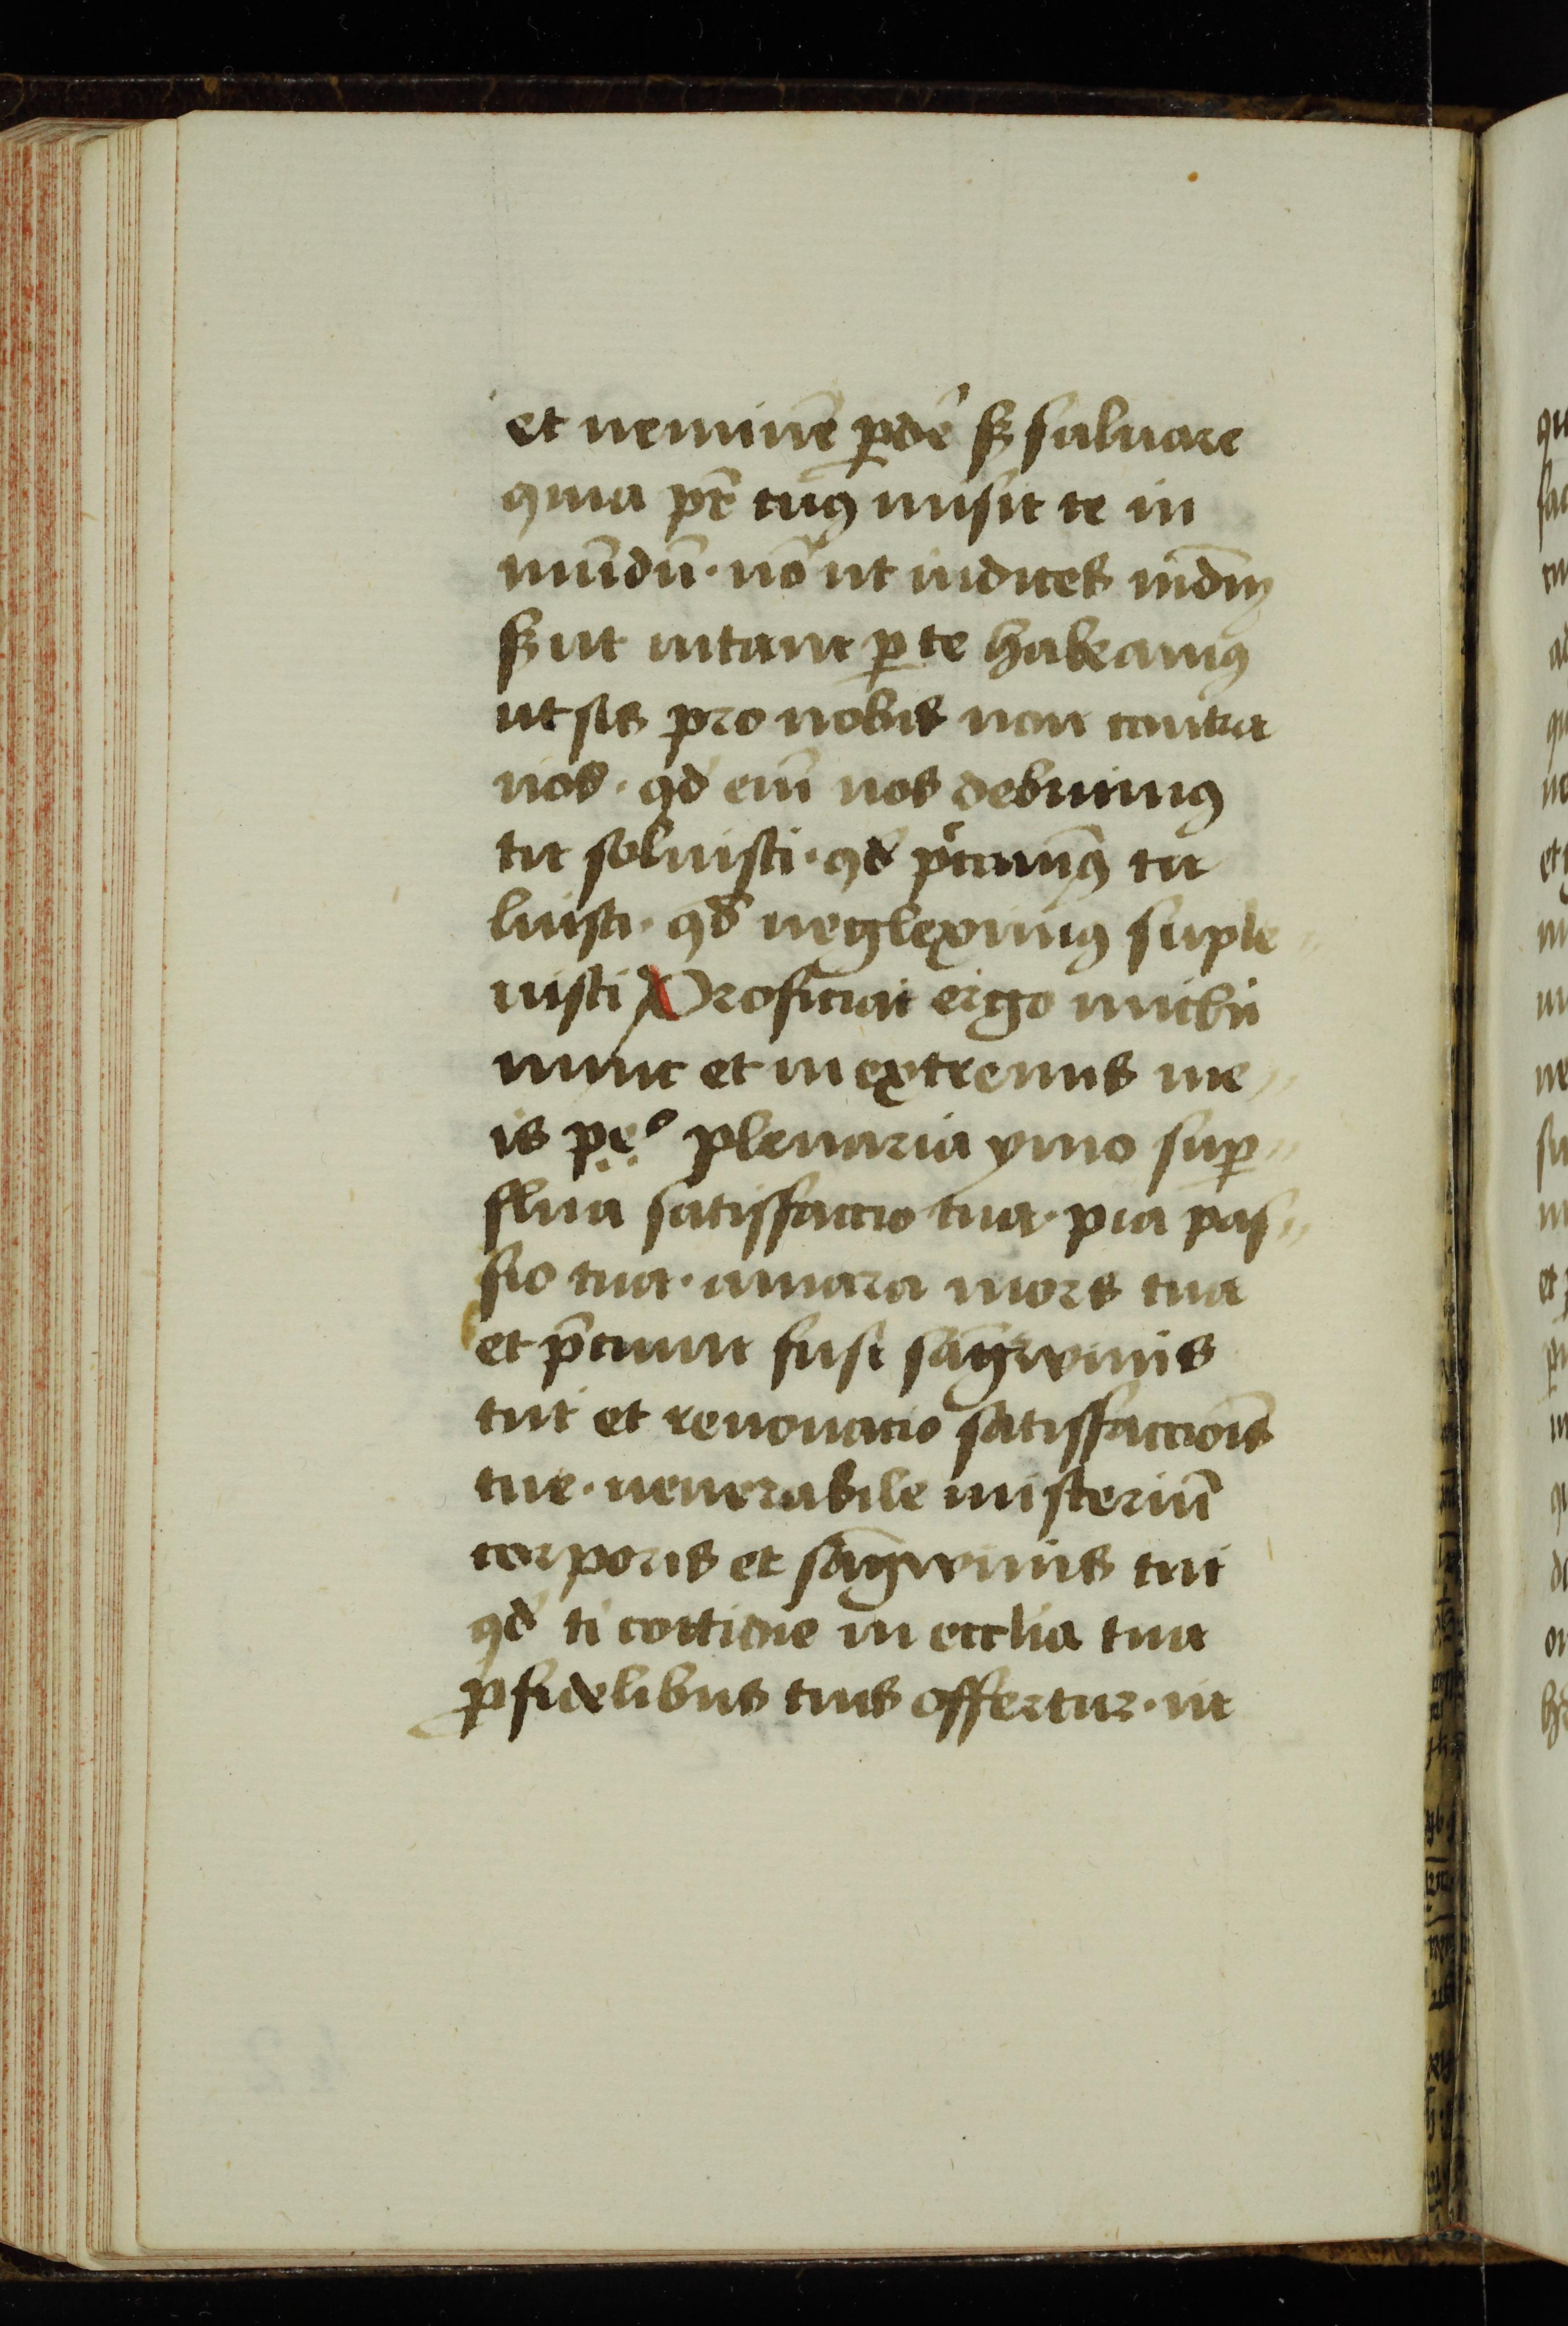 et neminē ꝑdē sꝫ saluare
quia pr̄ tuꝰ misit te in
mūdū · nō ut iudices mūdū
sꝫ ut uitam ꝑ te habeamꝰ
ut sis pro nobis non contra
nos · qd̓ em̄ nos debuimꝰ
tu soluisti · qd̓ pͨcauimꝰ tu
luisti · qd̓ negleximꝰ suple
uisti Proficiat ergo michi
nunc et in extremis me
is plenaria ymo suꝑ
flua satisfaccio tua · pia pas
sio tua · amara mors tua
et p̄cium fusi sāgwinis
tui et renouacio satisfacciōis
tue · uenerabile misteriū
corporis et sāgwinis tui
qd̓ t̄ cottidie in ecclīa tua
ꝓ fidelibus tuis offertur · ut